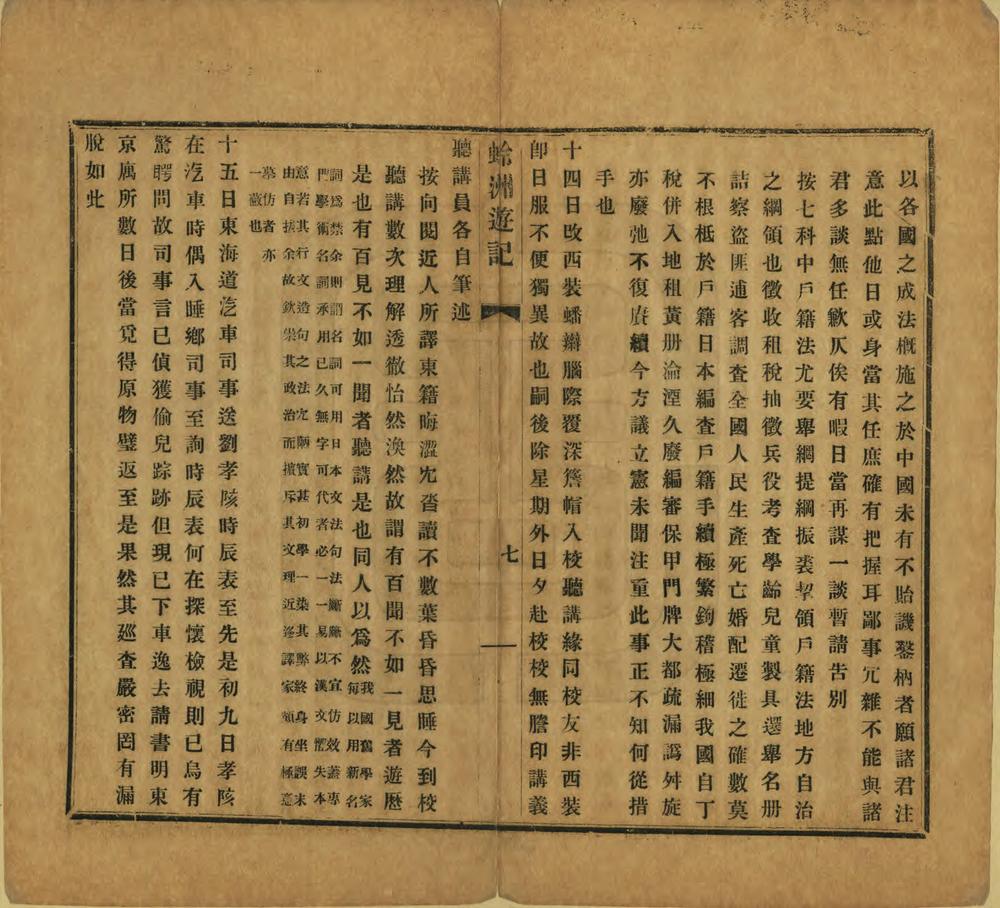 以各國之成法概施之於中國未有不貽譏鑿枘者願諸君注
意此點他日或身當其任庶確有把握耳鄙事冗雜不能與諸
君多談無任歉仄俟有暇日當再謀一談暫請告別
按七科中戶籍法尤要舉綱提綱振裘挈領戶籍法地方自治
之綱領也徵收租稅抽徵兵役考查學齡兒童製具選舉名册
詰察盜匪逋客調查全國人民生產死亡婚配遷徙之確數莫
不根柢於戶籍日本編查戶籍手續極繁鉤稽極細我國自丁
稅併入地租黃册淪湮久廢編審保甲門牌大都疏漏譌舛旋
亦廢弛不復賡續今方議立憲未聞注重此事正不知何從措
手也
十四日改西裝蟠辮腦際覆深簷帽入校聽講緣同校友非西裝
卽日服不便獨異故也嗣後除星期外日夕赴校校無謄印講義
蛉洲遊記
七
聽講員各自筆述
按向閱近人所譯東籍晦澀冗沓讀不數葉昏昏思睡今到校
聽講數次理解透徹怡然渙然故謂有百聞不如一見者遊歷
是也有百見不如一聞者聽講是也同人以爲然
我國舊學家
每以用新名
詞爲禁余則謂名詞可用日本文法句法斷斷不宜仿效蓋專
門學術名詞承用已久無字可代者必一一易以漢文體失本
意若其行文造句之法冗陋實甚初學一染其弊終身坐誤末
由自拔余故欽崇其政治而擯斥其文理近迻譯家頗有極意
摹仿者亦
一蔽也
十五日東海道汽車司事送劉孝陔時辰表至先是初九日孝陔
在汽車時偶入睡鄉司事至詢時辰表何在探懷檢視則已烏有
驚愕問故司事言已偵獲偷兒踪跡但現已下車逸去請書明東
京寓所數日後當覓得原物璧返至是果然其巡查嚴密罔有漏
脫如此